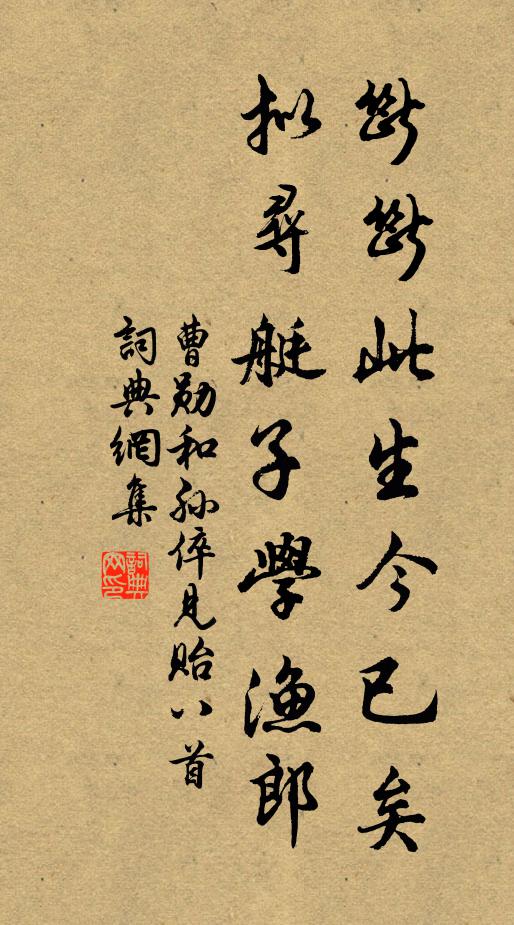 斷斷此生今已矣
拟尋艇子學漁郎
曹勛和孫倅見貽八首
詞典網集
詞典网印